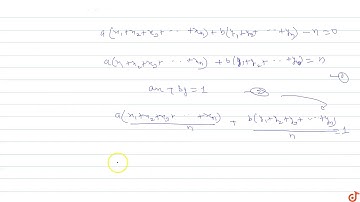 a(x₁+x₂+x₃+ ⋯ +xₙ)+b(y₁+y₂+ ⋯ +yₙ) −n=0
a(x₁+x₂+x₃+ ⋯ +xₙ) + b(y₁+y₂+ ⋯ +yₙ) = n
ax+by=1
a(x₁+x₂+x₃+ ⋯ +xₙ)/n + b(y₁+y₂+y₃+ ⋯ +yₙ)/n =1